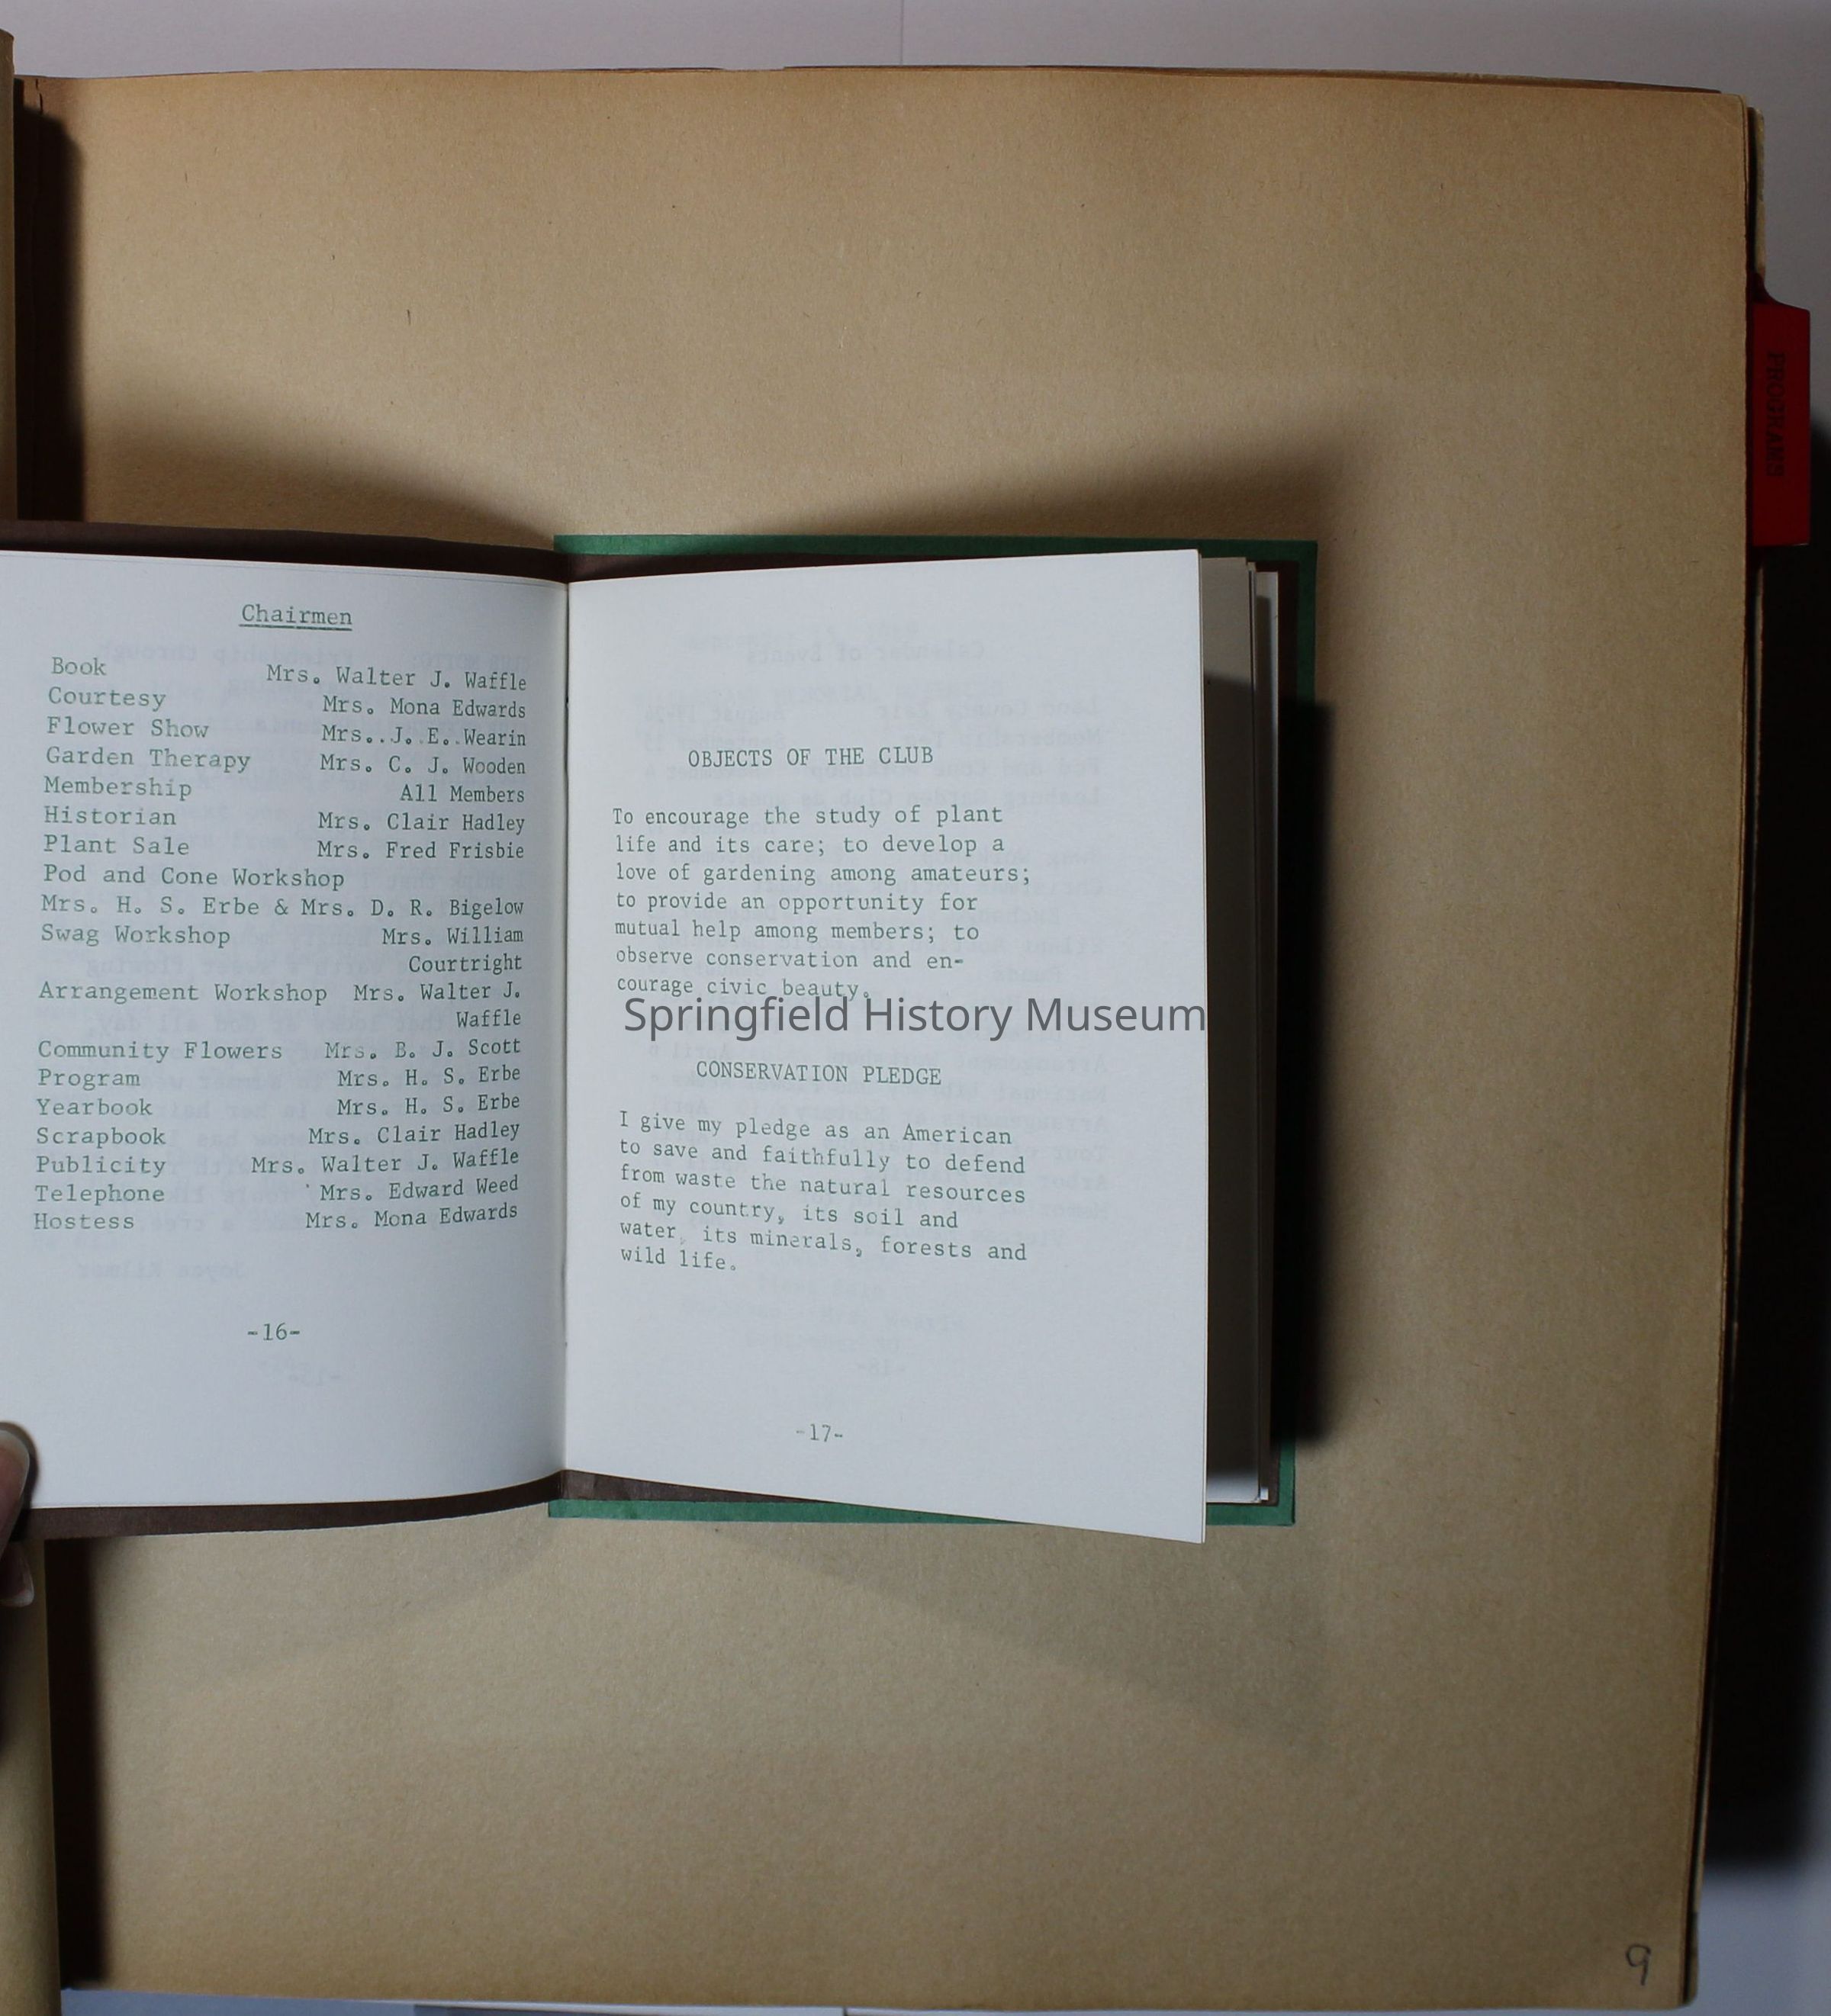 Chairmen
Book Mrs. Walter J. Waffle
Courtesy Mrs. Mona Edwards
Flower Show Mrs..J. E..Wearin
Garden Therapy Mrs. C. J. Wooden
Membership All Members
Historian Mrs. Clair Hadley
Plant Sale Mrs. Fred Frisbie
Pod and Cone Workshop
Mrs. H. S. Erbe & Mrs. D. R. Bigelow
Swag Workshop Mrs. William
Courtright
Arrangement Workshop Mrs. Walter J.
Waffle
Community Flowers Mrs. B. J. Scott
Program Mrs. H. S. Erbe
Yearbook Mrs. H. S. Erbe
Scrapbook Mrs. Clair Hadley
Publicity Mrs. Walter J. Waffle
Telephone Mrs. Edward Weed
Hostess Mrs. Mona Edwards
-16-
OBJECTS OF THE CLUB
To encourage the study of plant
life and its care; to develop a
love of gardening among amateurs;
to provide an opportunity for
mutual help among members; to
observe conservation and en-
courage civic beauty.
Springfield History Museum
CONSERVATION PLEDGE
I give my pledge as an American
to save and faithfully to defend
from waste the natural resources
of my country, its soil and
water, its minerals, forests and
wild life.
-17-
PROGRAMS
9